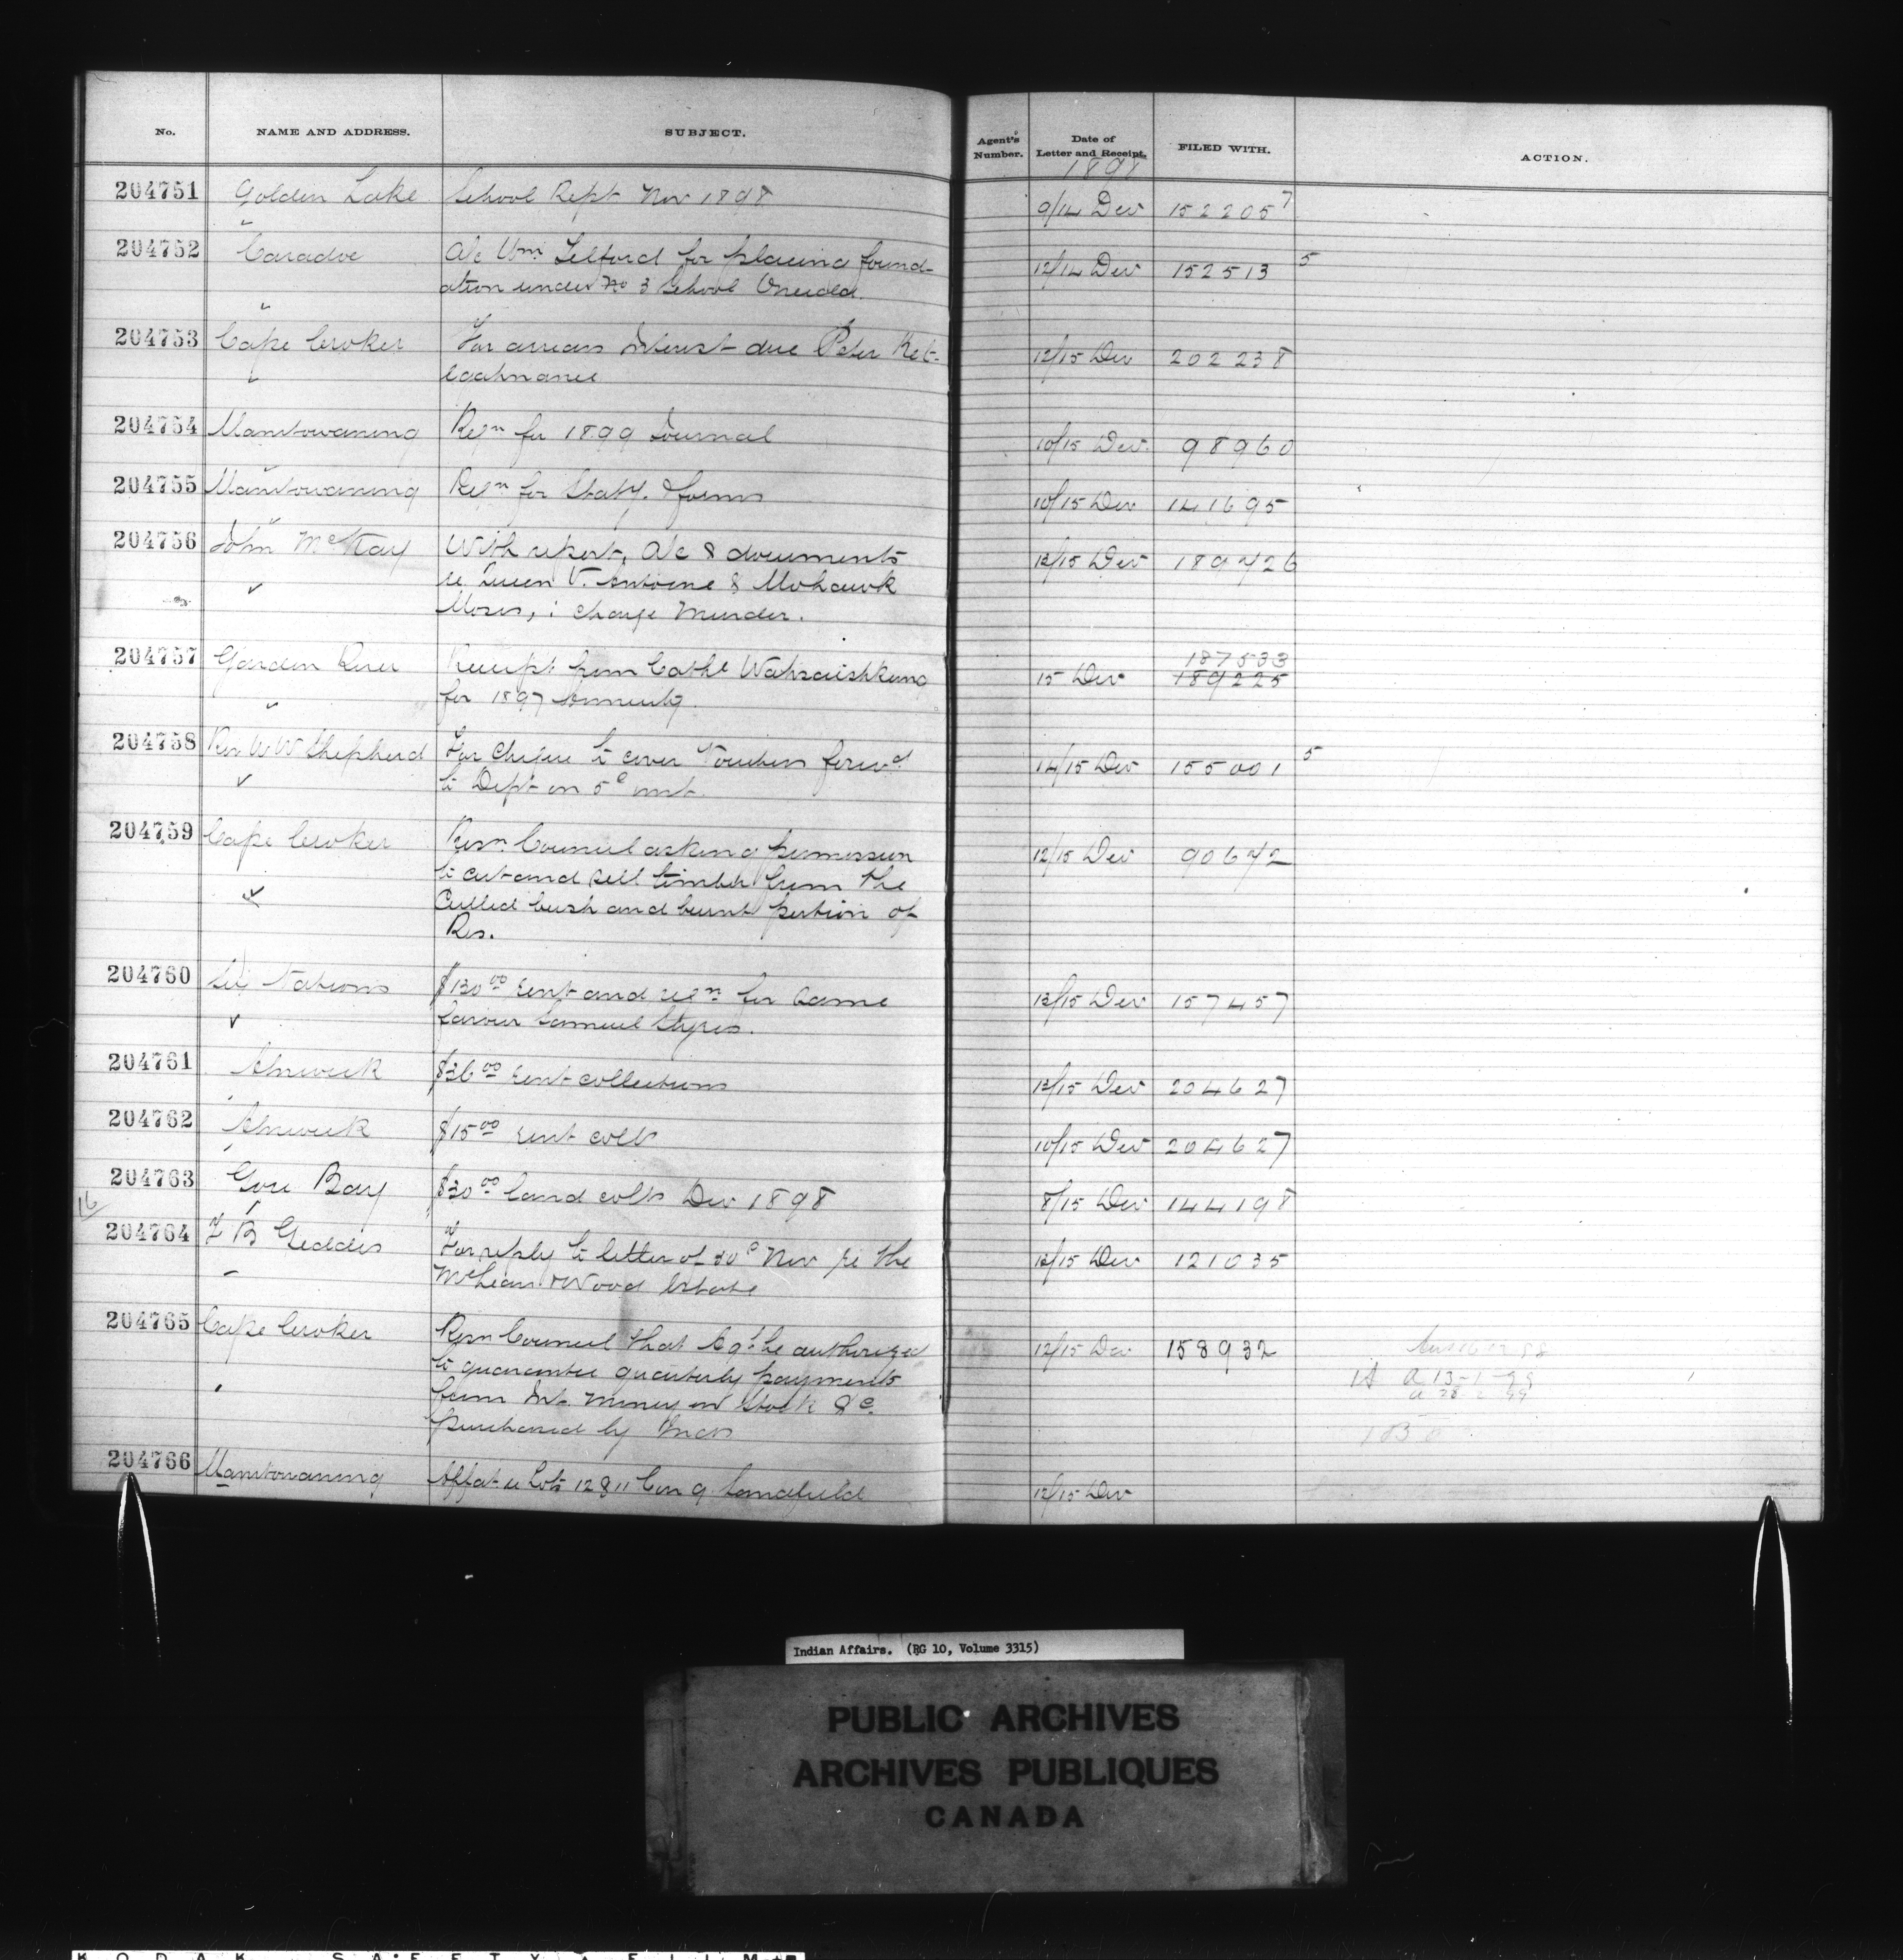 No. NAME AND ADDRESS. SUBJECT. Agent's Number. Date of Letter and Receipt. FILED WITH. ACTION.
1898
204751 Golden Lake School Rept Nov 1898 9/14 Dec 152205 7
204752 Caradoc A/c Wm Telford for placing found- 12/14 Dec 152513 5
ation under No 3 School Oneida.
204753 Cape Croker For arrears Interest due Peter Ket- 12/15 Dec 202238
204754 Manitowaning Reqn for 1899 Journal 10/15 Dec. 98960
204755 Manitowaning Reqn for Staty. & forms 10/15 Dec 141695
204756 John McKay With report, A/c & documents 13/15 Dec 189726
re Queen V. Antoine & Mohawk
Moses, : charge Murder.
204757 Garden River Receipt from Cathe 15 Dec 187533
189225
for 1897 Annuity.
204758 Rev W W Shepherd For cheque to cover vouchers forwd 14/15 Dec 155001 5
to Dept on 5e inst.
204759 Cape Croker Resn. Council asking permission 12/15 Dec 90672
to cut and sell timber from the
Culled bush and burnt portion of
Res.
204760 Six Nations $130.00 rent and reqn for same 13/15 Dec 157457
favour Samuel Styres.
204761 Alnwick $36.00 rent collections 13/15 Dec 204627
204762 Alnwick $15.00 rent colls 10/15 Dec 204627
204763 Gore Bay $30.00 land colls Dec 1898 8/15 Dec 144198
16
204764 F B Geddes For reply to letter of 30e Nov re the 13/15 Dec 121035
McLean & Wood Estate
204765 Cape Croker Resn Council that Agt. be authorized 12/15 Dec 158932
to guarantee quarterly payments 1A a 13-1-99
from Int. money on Stock &c.
purchased by Inds
204766 Manitowaning Affat re Lots 12 & 11 Con 9 Sandfield 12/15 Dec
Indian Affairs. (RG 10, Volume 3315)
PUBLIC ARCHIVES
ARCHIVES PUBLIQUES
CANADA
KODAK SAFETY FILM